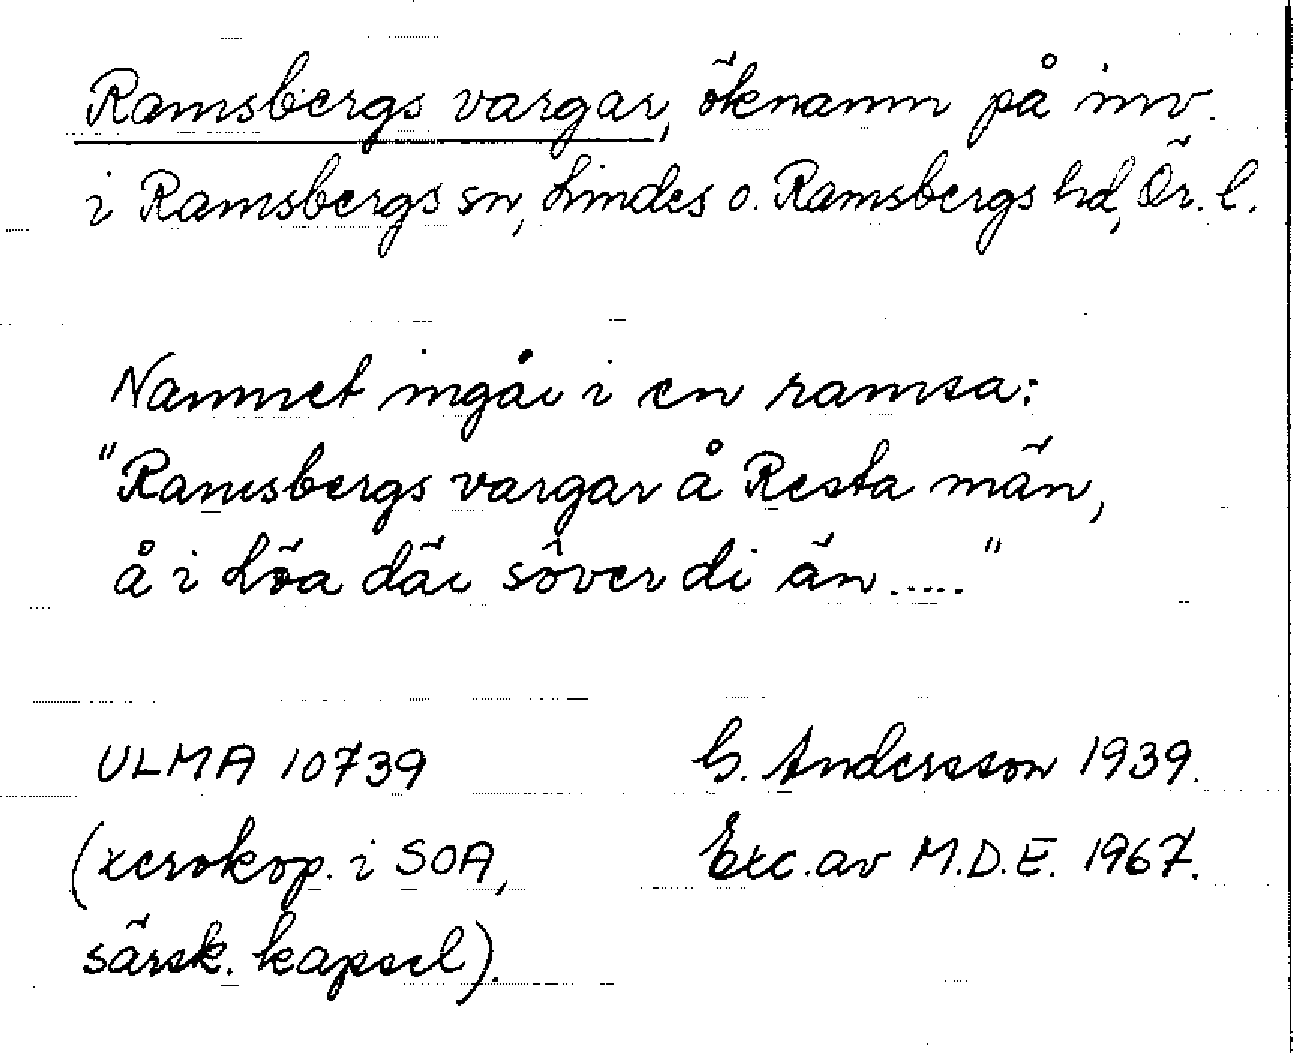 Ramsbergs vargar, öknamn på inv.
i Ramsbergs sn, Lindes o. Ramsbergs hd, Ör. l.
Namnet ingår i en ramsa:
"Ramsbergs vargar å Resta män,
å i Löa där sôver di än....."
ULMA 10739
G. Andersson 1939.
(xerokop. i SOA,
Exc. av M.D.E. 1967.
särsk. kapsel).